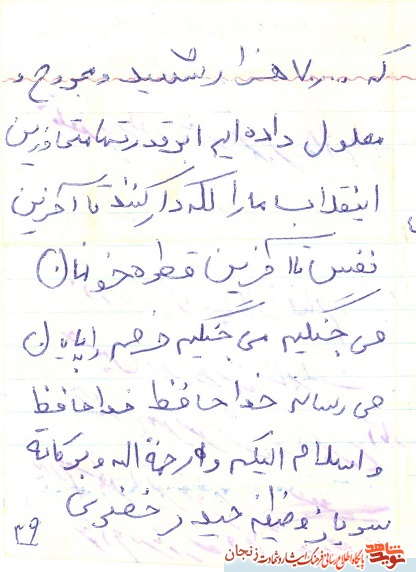 که ۷۰۰۰۰ هزار شهید و مجروح و
معلول داده ایم ابرقدرتها متجاوزین
اینقلاب ما را لکه دار کنند تا آخرین
نفس تا آخرین قطره خونمان
می جنگیم می جنگیم را بپایان
می رسانم خدا حافظ خدا حافظ
واسلام الیکم و رحمة اله و برکاته
سرباز وظیفه حیدر خضری
۳۹
نوید شاهد پایگاه اطلاع رسانی فرهنگ ایثار و شهادت زنجان